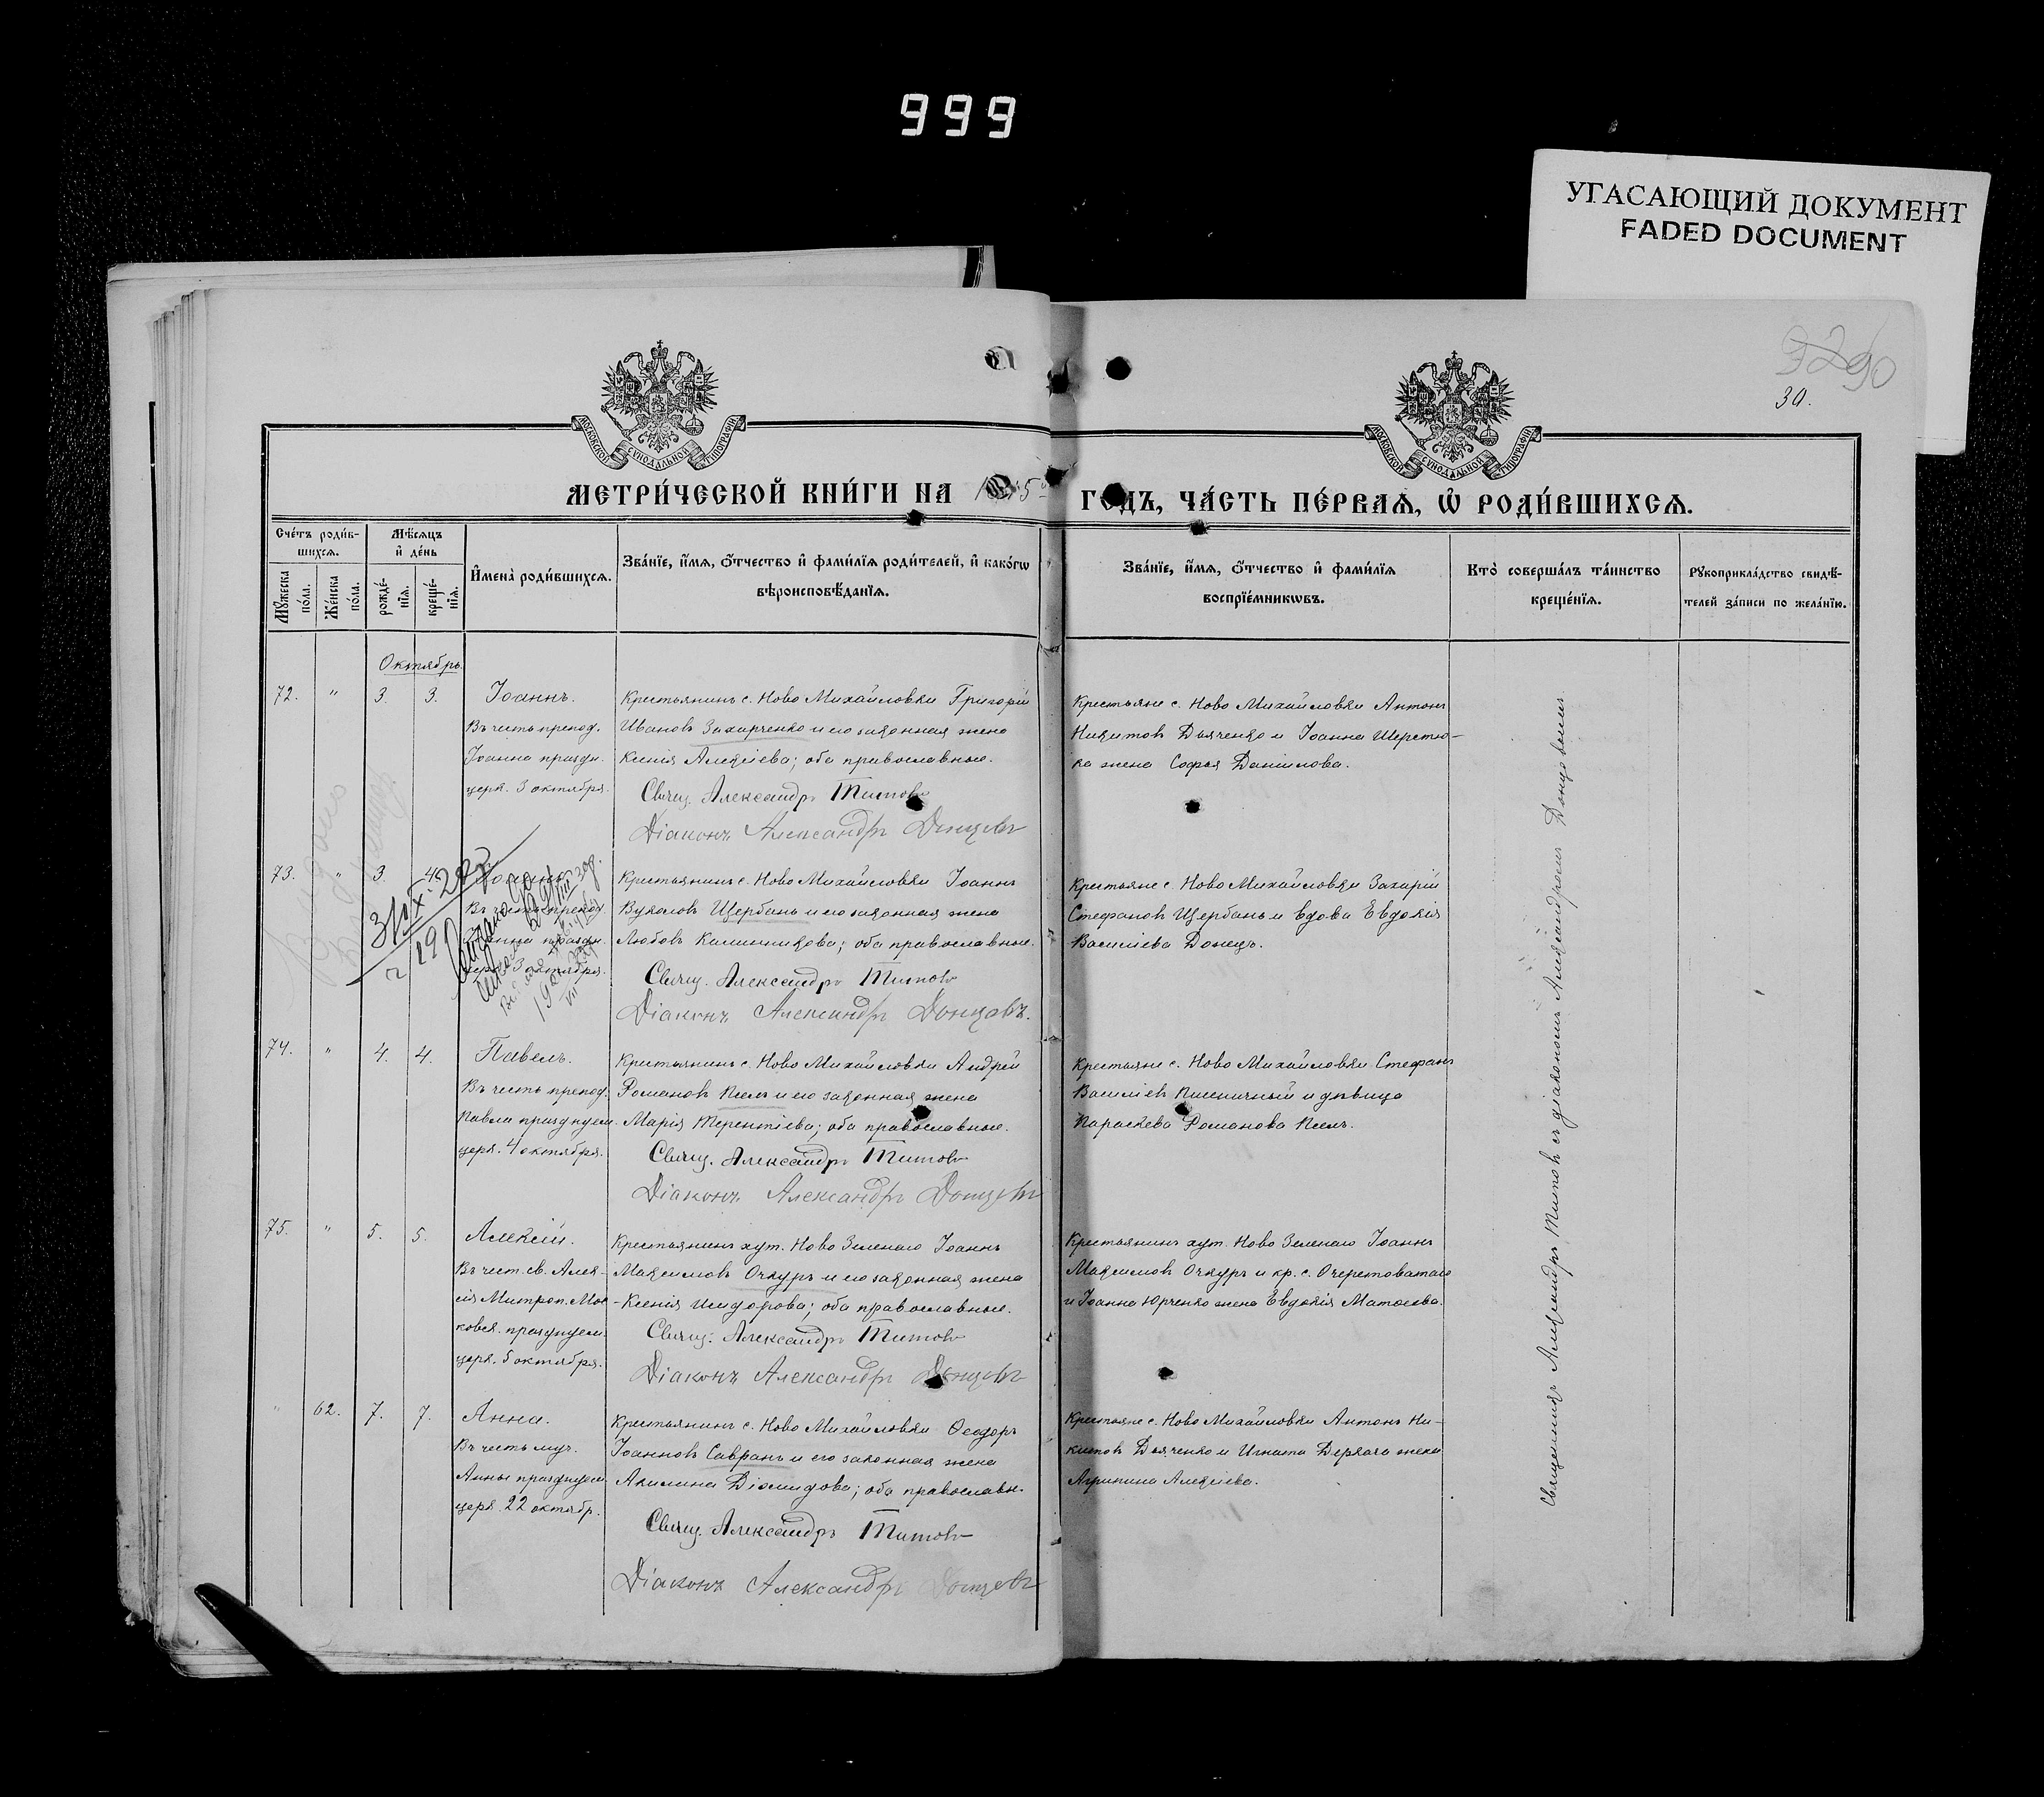 999
УГАСАЮЩИЙ ДОКУМЕНТ
FADED DOCUMENT
30.
МОСКОВСКОЙ СѴНОДАЛЬНОЙ ТИПОГРАФІИ
МОСКОВСКОЙ СѴНОДАЛЬНОЙ ТИПОГРАФІИ
МЕТРИ́ЧЕСКОЙ КНИ́ГИ НА
ГОДЪ, ЧА́СТЬ ПЕ́РВАѦ, Ѡ҆ РОДИ́ВШИХСѦ.
Сче́тъ роди́в-
шихсѧ.
Мꙋ́жеска по́ла.
Же́нска по́ла.
Мѣ́сѧцъ
и҆ де́нь
рожде́-
нїѧ.
креще́-
нїѧ.
И҆мена̀ роди́вшихсѧ.
Зва́нїе, и҆́мѧ, ѻ҆́тчество и҆ фами́лїѧ роди́телей, и҆ како́гѡ
вѣроисповѣ́данїѧ.
Зва́нїе, и҆́мѧ, ѻ҆́тчество и҆ фами́лїѧ
воспрїе́мникѡвъ.
Кто̀ соверша́лъ та́инство
креще́нїѧ.
Рꙋкоприкла́дство свидѣ́-
телей за́писи по жела́нїю.
Октябрь.
72. " 3. 3.
Іоаннъ.
Въ честь препод.
Іоанна праздн.
церк. 3 октября.
Крестьянинъ с. Ново Михайловки Григорій
Ивановъ Захарченко и его законная жена
Ксенія Алексіева; оба православные.
Свящ. Александръ Титовъ
Діаконъ Александръ Донцовъ
Крестьяне с. Ново Михайловки Антонъ
Никитовъ Дьяченко и Іоанна Шерстю-
ка жена Софья Даніилова.
73. " 3. 4.
Іоаннъ.
Въ честь препод.
Іоанна праздн.
церк. 3 октября.
Крестьянинъ с. Ново Михайловки Іоаннъ
Вуколовъ Щербань и его законная жена
Любовь Калинникова; оба православные.
Свящ. Александръ Титовъ
Діаконъ Александръ Донцовъ.
Крестьяне с. Ново Михайловки Захарій
Стефановъ Щербань и вдова Евдокія
Василіева Донецъ.
74. " 4. 4.
Павелъ.
Въ честь препод.
Павла празднуем.
церк. 4 октября.
Крестьянинъ с. Ново Михайловки Андрей
Романовъ Псёлъ и его законная жена
Марія Терентіева; оба православные.
Свящ. Александръ Титовъ
Діаконъ Александръ Донцовъ
Крестьяне с. Ново Михайловки Стефанъ
Василіевъ Пшеничный и дѣвица
Параскева Романова Псёлъ.
75. " 5. 5.
Алексій.
Въ чест. св. Алек-
сія Митроп. Мос
ковск. празднуем.
церк. 5 октября.
Крестьянинъ хут. Ново Зеленаго Іоаннъ
Максимовъ Очкуръ и его законная жена
Ксенія Исидорова; оба православные.
Свящ. Александръ Титовъ
Діаконъ Александръ Донцовъ
Крестьянинъ хут. Ново Зеленаго Іоаннъ
Максимовъ Очкуръ и кр. с. Очеретоватаго
и Іоанна Юрченко жена Евдокія Матѳеева.
" 62. 7. 7.
Анна.
Въ честь муч.
Анны празднуем.
церк. 22 октябр.
Крестьянинъ с. Ново Михайловки Ѳеодоръ
Іоанновъ Савранъ и его законная жена
Акилина Діомидова; оба православн.
Свящ. Александръ Титовъ
Діаконъ Александръ Донцовъ
Крестьяне с. Ново Михайловки Антонъ Ни-
китовъ Дьяченко и Игната Деркача жена
Агрипина Алексіева.
Священникъ Александръ Титовъ съ діакономъ Александромъ Донцовымъ